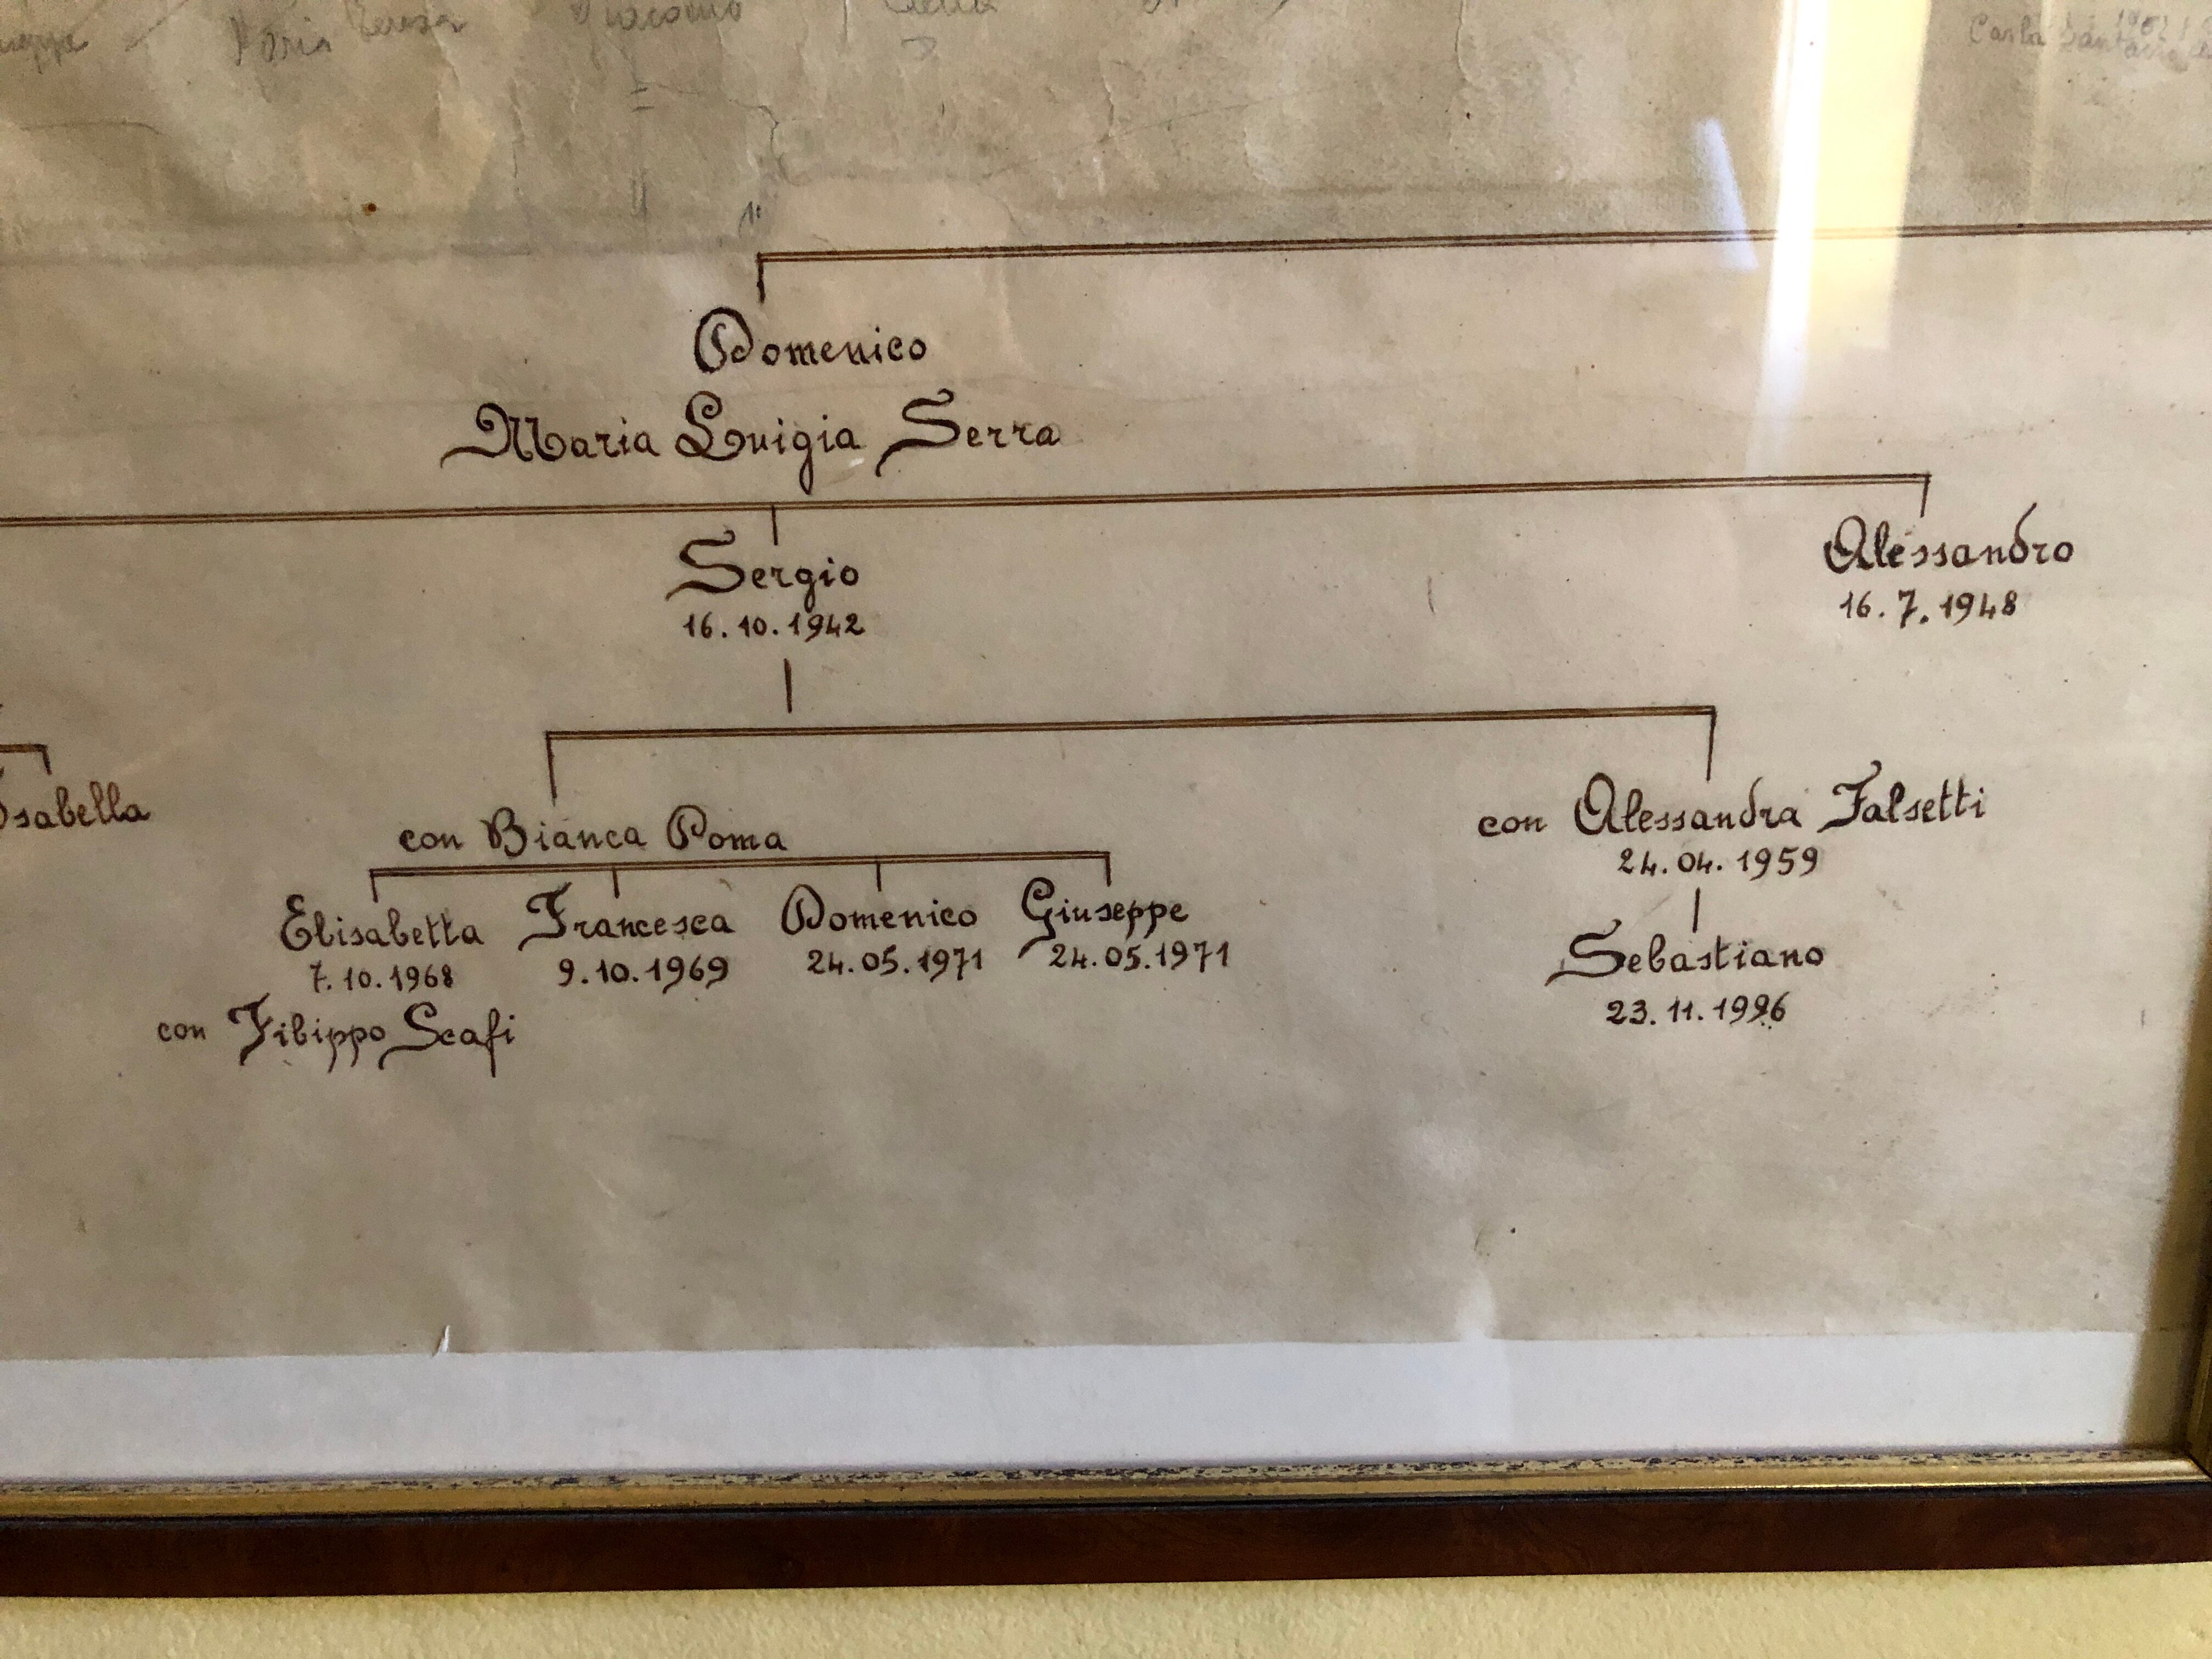 Maria Teresa
Giacomo
Carla
1°
Domenico
Maria Luigia Serra
Sergio
16.10.1942
Alessandro
16.7.1948
Isabella
con Bianca Poma
con Alessandra Falsetti
24.04.1959
Elisabetta Francesca Domenico Giuseppe
7.10.1968 9.10.1969 24.05.1971 24.05.1971
con Filippo Scafi
Sebastiano
23.11.1996